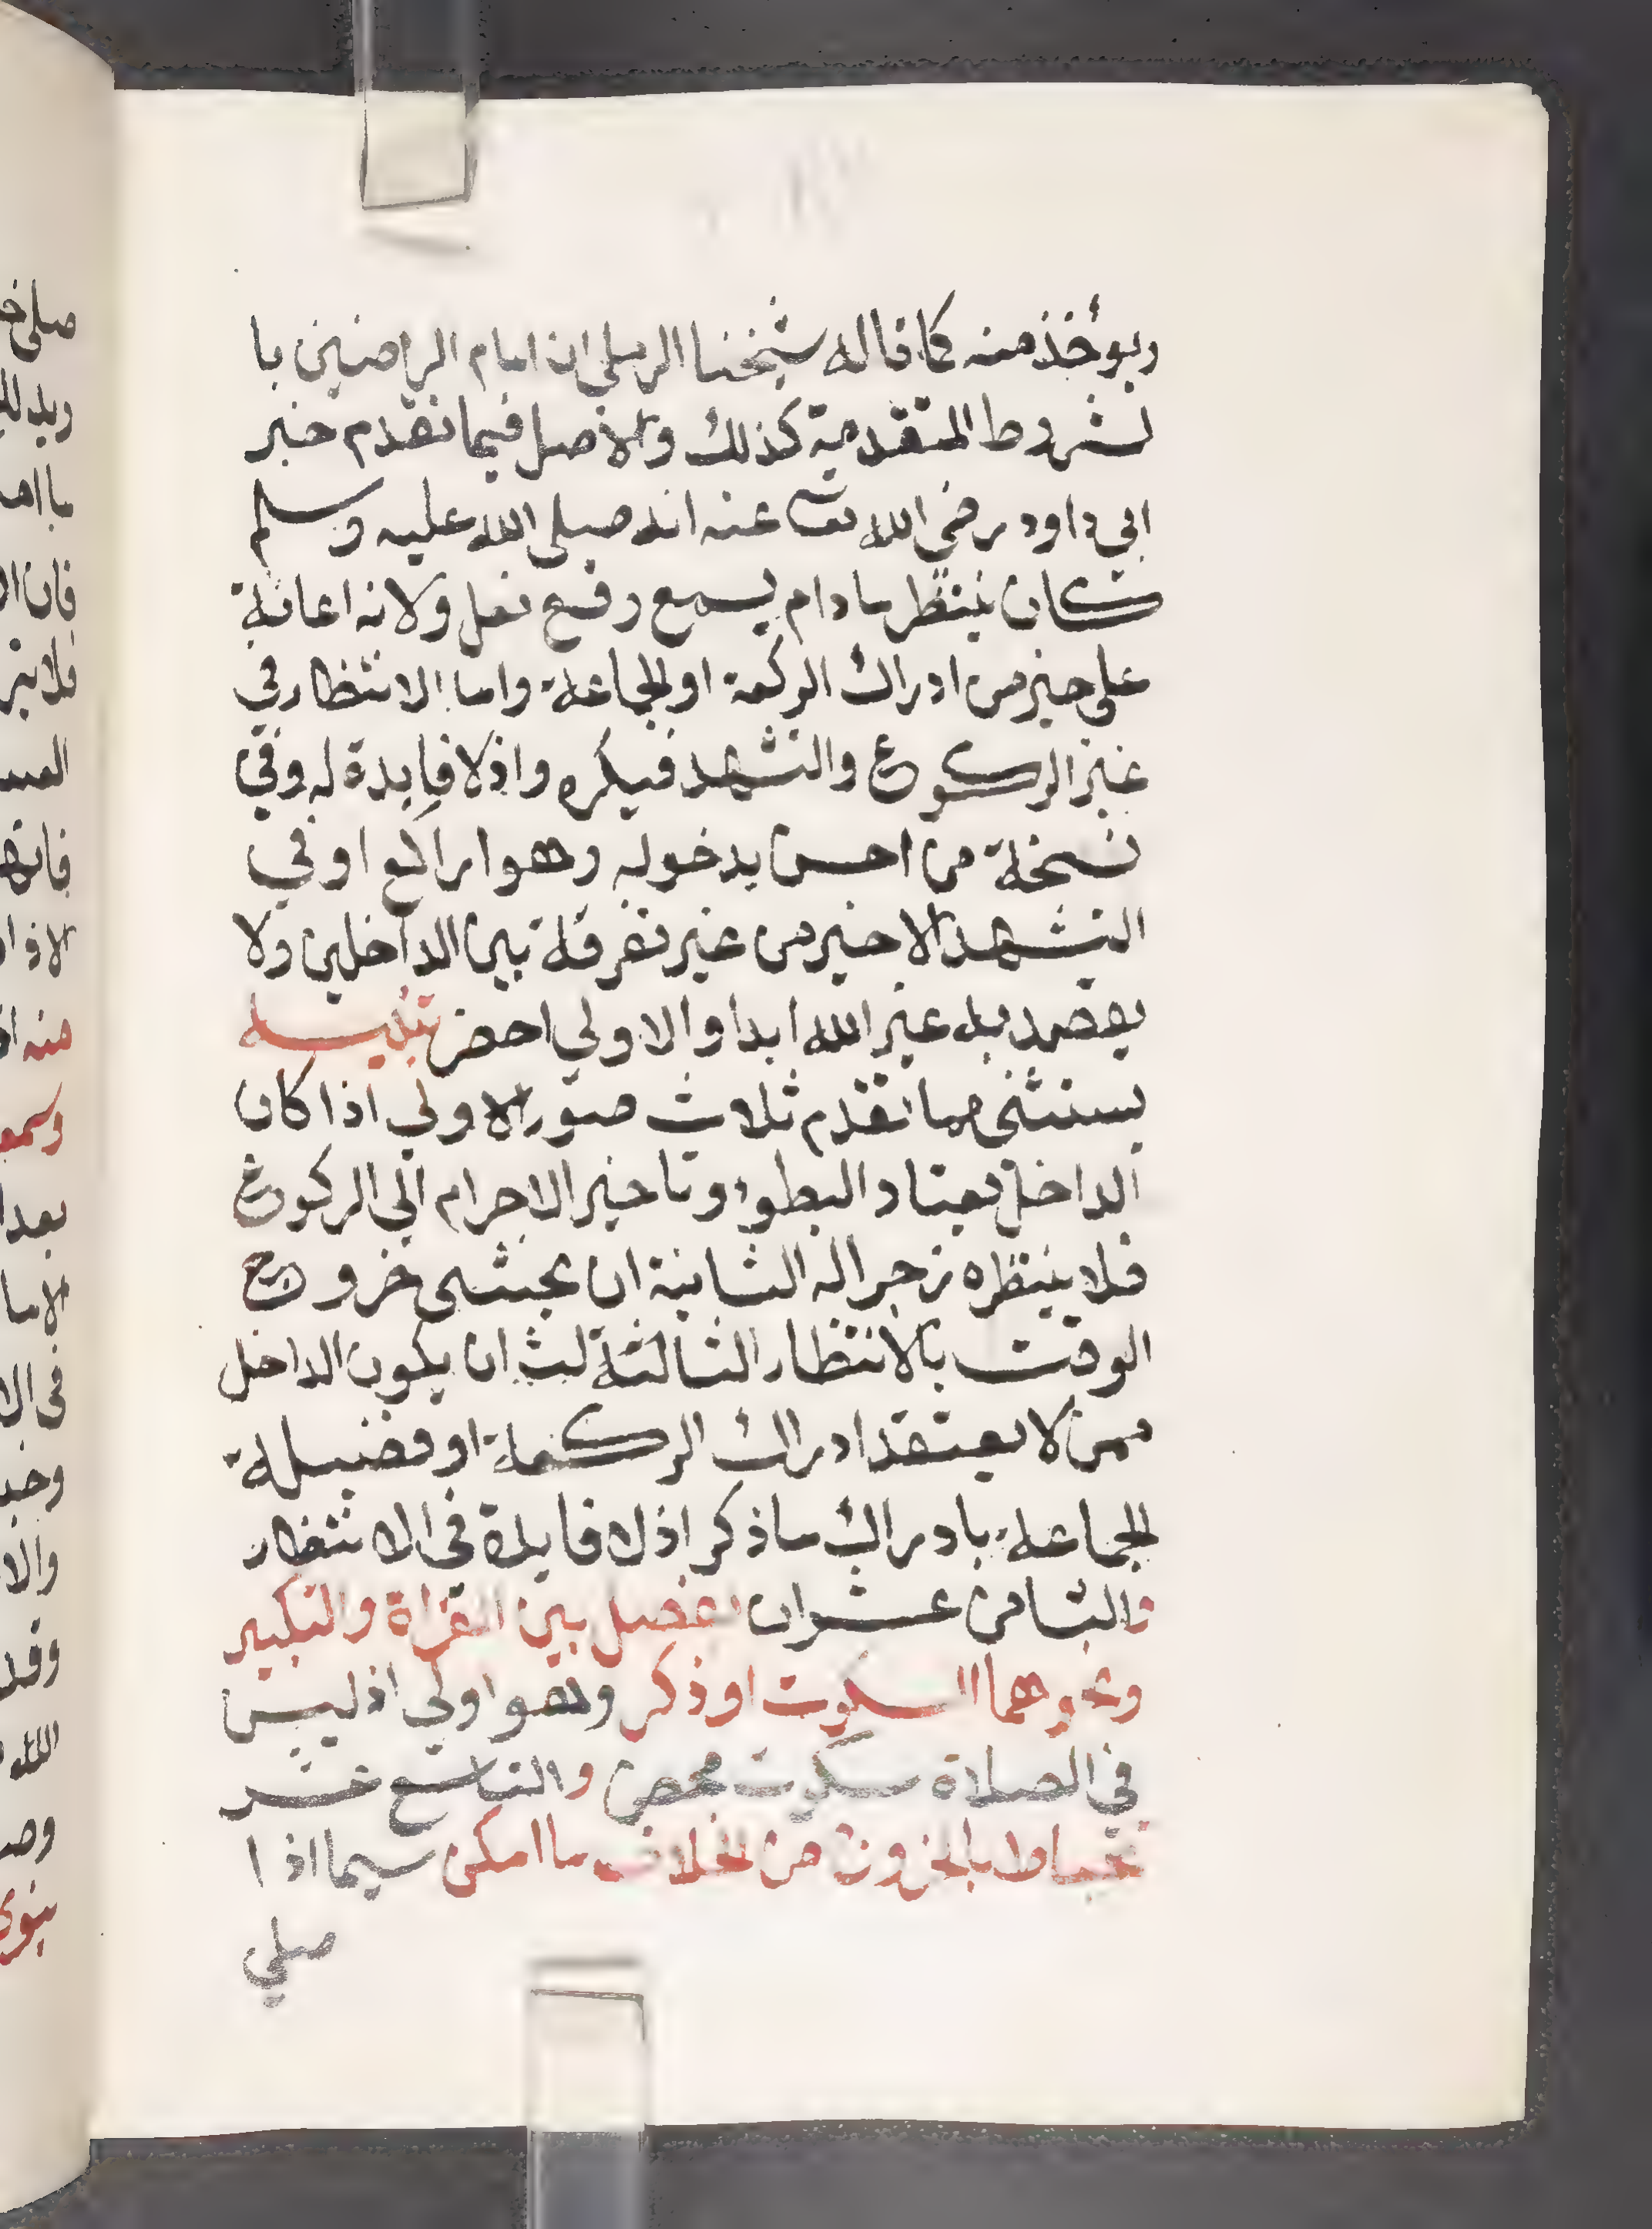 ويؤخذ منه كما قاله شيخنا الرملي ان امام الراضين با
لشروط المتقدمة كذلك والاصل فيما تقدم خبر
ابي داود رضي الله تعـ عنه انه صلى الله عليه وسلم
كان ينتظر ما دام يسمع وقع نعل ولانه اعانة
على خير من ادراك الركعة او الجماعة واما الانتظار في
غير الركوع والتشهد فيكره واذ لا فايدة له وفي
نسخة من احس بدخوله وهو راكع او في
التشهد الاخير من غير تفرقة بين الداخلين ولا
يقصد به غير الله ابدا والاولي احضر تنبيه
يستثنى مما تقدم ثلاث صور الاولي اذا كان
الداخل يعتاد البطوء وتاخير الاحرام الي الركوع
فلا ينتظره زجرا له الثانية ان يخشى خروج
الوقت بالانتظار الثالثة لث ان يكون الداخل
ممن لا يعتقد ادراك الركعة او فضيلة
الجماعة بادراك ما ذكر اذ لا فايدة في الانتظار
والثامن عشر ان يفصل بين القراة والتكبير
ونحوهما السكوت او ذكر وهو اولي اذ ليس
في الصلاة سكوت محض والتاسع عشر
يحتاط بالخروج من الخلاف ما امكن سيما اذا
صلي